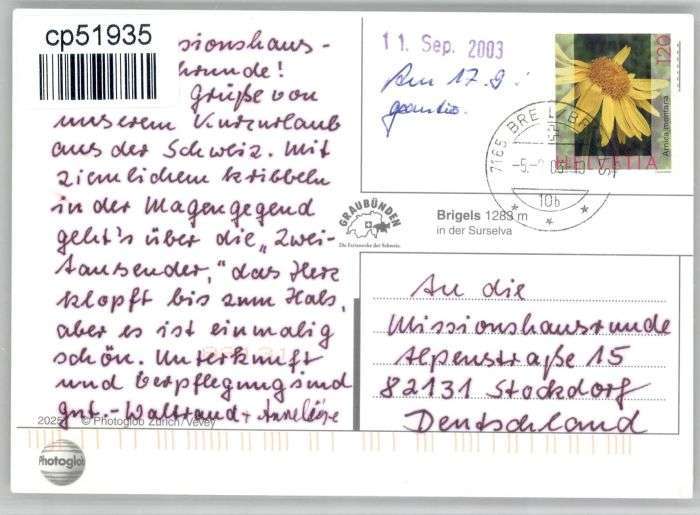 cp51935
ssionshaus-
runde!
Grüße von
unserem Kurzurlaub
aus der Schweiz. Mit
ziemlichem kribbeln
in der Magengegend
geht's über die „Zwei-
tausender," das Herz
klopft bis zum Hals,
aber es ist einmalig
schön. Unterkunft
und Verpflegung sind
gut. - Waltraud + Anneliese
2025
© Photoglob Zürich/Vevey
Photoglob
11. Sep. 2003
Am 17.9.
120
Arnica montana
HELVETIA
7165 BRE
10b
GRAUBÜNDEN
Die Ferienecke der Schweiz.
Brigels 1289 m
in der Surselva
An die
Missionshausrunde
Alpenstraße 15
82131 Stockdorf
Deutschland